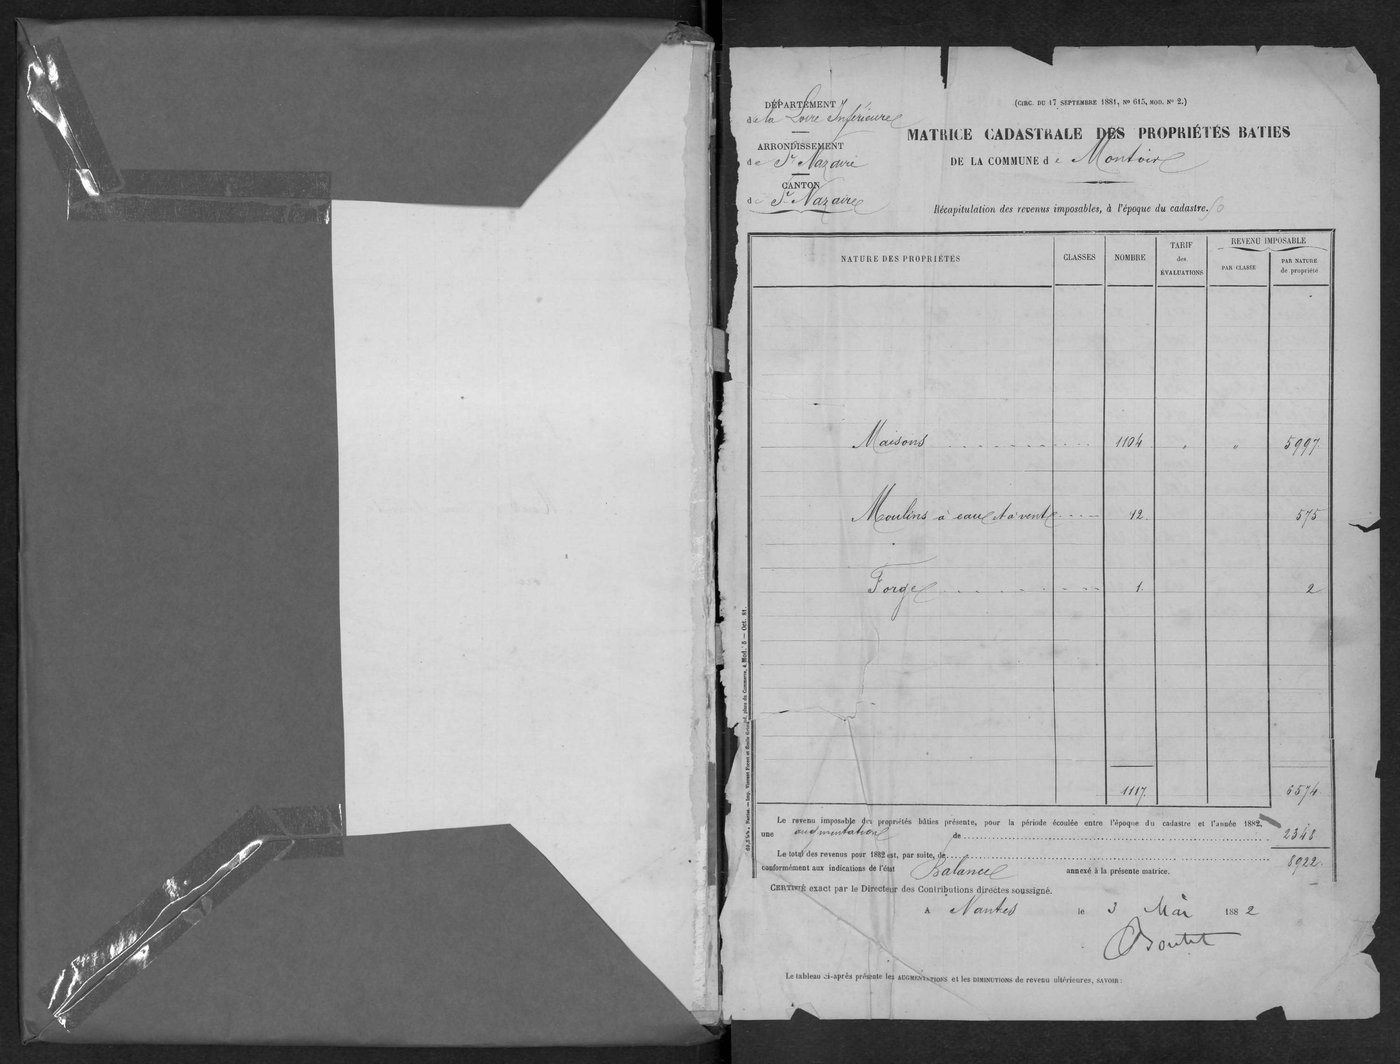 (CIRC. DU 17 SEPTEMBRE 1881, Nº 615, MOD. Nº 2.)
DÉPARTEMENT
de la Loire Inférieure
ARRONDISSEMENT
de St Nazaire
CANTON
de St Nazaire
MATRICE CADASTRALE DES PROPRIÉTÉS BATIES
DE LA COMMUNE de Montoir
Récapitulation des revenus imposables, à l'époque du cadastre.
NATURE DES PROPRIÉTÉS
CLASSES
NOMBRE
TARIF
des
ÉVALUATIONS
REVENU IMPOSABLE
PAR CLASSE
PAR NATURE
de propriété
Maisons 1104 " " 5997
Moulins à eau et à vent 12. 575
Forge 1. 2
1117. 6574
Le revenu imposable des propriétés bâties présente, pour la période écoulée entre l'époque du cadastre et l'année 1882,
une augmentation de 2348
Le total des revenus pour 1882 est, par suite, de 8922.
conformément aux indications de l'état Balance annexé à la présente matrice.
CERTIFIÉ exact par le Directeur des Contributions directes soussigné.
A Nantes le 3 Mai 1882
Boutet
Le tableau ci-après présente les AUGMENTATIONS et les DIMINUTIONS de revenu ultérieures, SAVOIR :
place du Commerce, 4. Mod. 5 — Oct. 81.